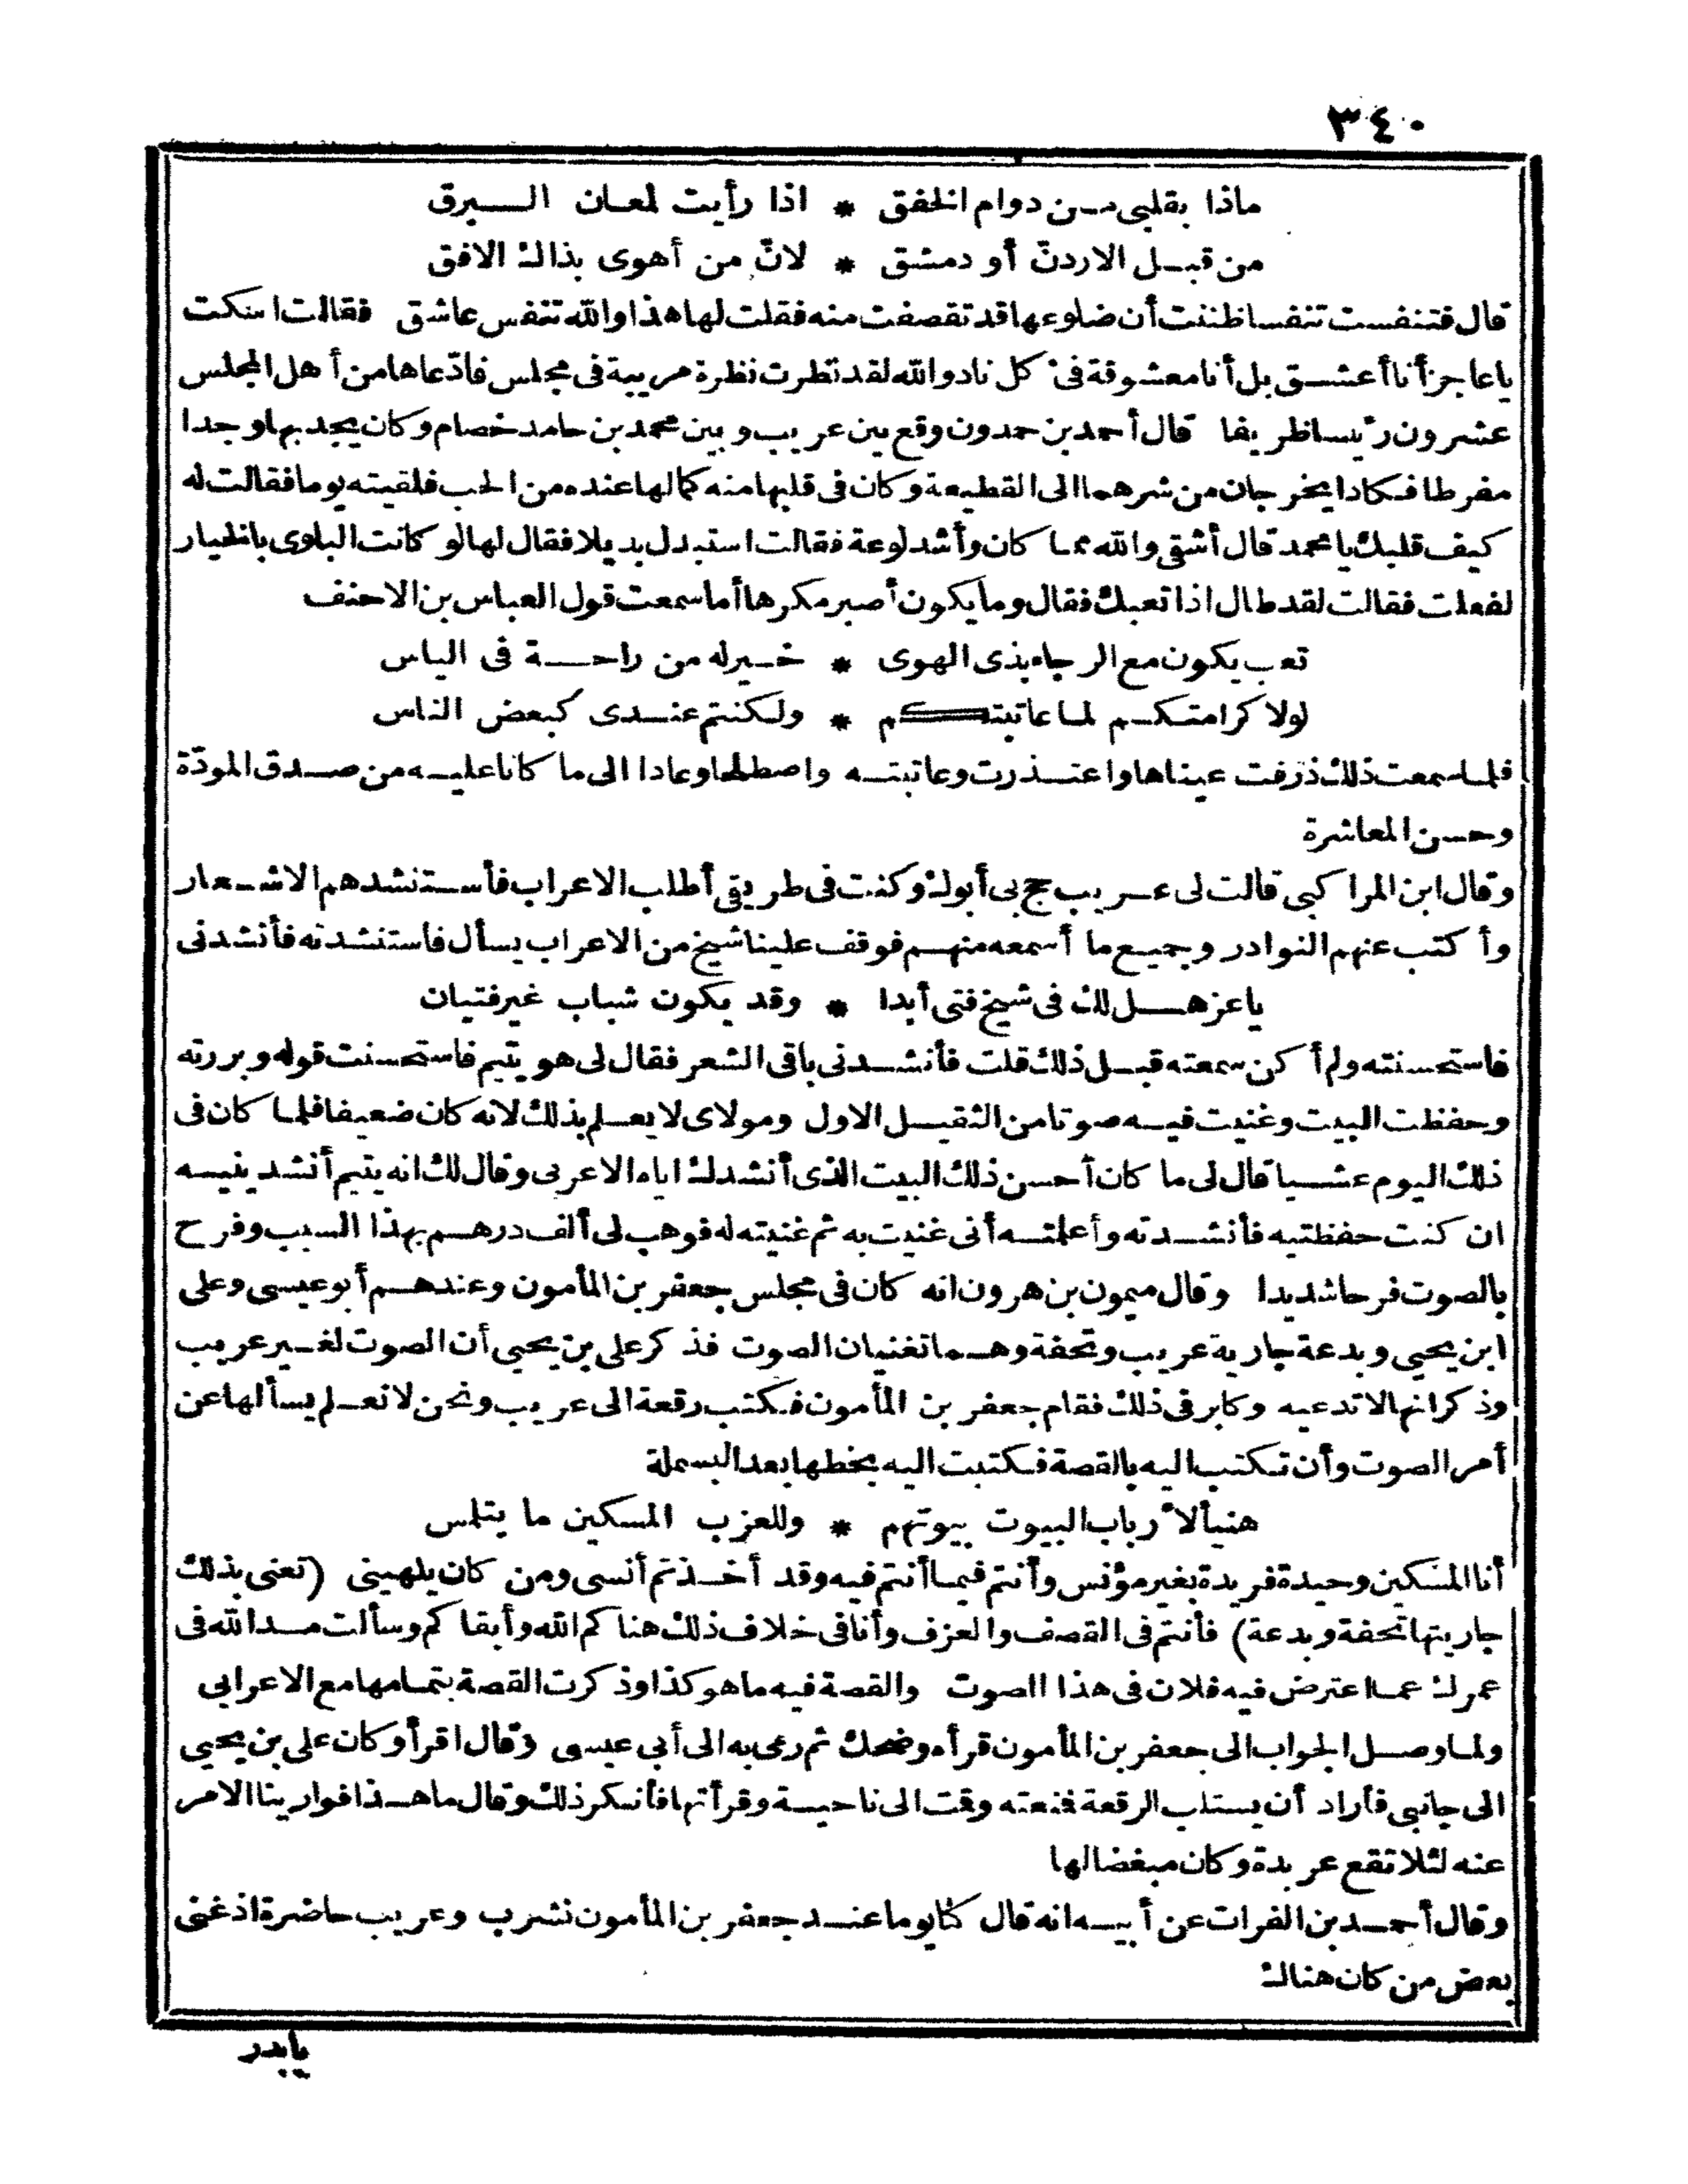 ٣٤٠
ماذا بقلبى من دوام الخفق * اذا رأيت لمعان البرق
من قبل الاردنّ أو دمشق * لانّ من أهوى بذاك الافق
قال فتنفست تنفسا ظننت أن ضلوعها قد تقصفت منه فقلت لها هذا والله تنفس عاشق فقالت اسكت
ياعاجز أنا أعشق بل أنا معشوقة فى كل ناد والله لقد نظرت نظرة مريبة فى مجلس فادّعاها من أهل المجلس
عشرون رئيسا ظريفا قال أحمد بن حمدون وقع بين عريب وبين محمد بن حامد خصام وكان يجد بها وجدا
مفرطا فكادا يخرجان من شرهما الى القطيعة وكان فى قلبها منه كما لها عنده من الحب فلقيته يوما فقالت له
كيف قلبك يا محمد قال أشقى والله مما كان وأشد لوعة فقالت استبدل بديلا فقال لها لو كانت البلوى بالخيار
لفعلت فقالت لقد طال اذا تعبك فقال وما يكون أصبر مكرها أما سمعت قول العباس بن الاحنف
تعب يكون مع الرجاء بذى الهوى * خير له من راحة فى الياس
لولا كرامتكم لما عاتبتكم * ولكنتم عندى كبعض الناس
فلما سمعت ذلك ذرفت عيناها واعتذرت وعاتبته واصطلحا وعادا الى ما كانا عليه من صدق المودّة
وحسن المعاشرة
وقال ابن المراكبى قالت لى عريب حج بى أبوك وكنت فى طريقى أطلب الاعراب فأستنشدهم الاشعار
وأكتب عنهم النوادر وجميع ما أسمعه منهم فوقف علينا شيخ من الاعراب يسأل فاستنشدته فأنشدنى
ياعز هل لك فى شيخ فتى أبدا * وقد يكون شباب غير فتيان
فاستحسنته ولم أكن سمعته قبل ذلك قلت فأنشدنى باقى الشعر فقال لى هو يتيم فاستحسنت قوله وبررته
وحفظت البيت وغنيت فيه صوتا من الثقيل الاول ومولاى لا يعلم بذلك لانه كان ضعيفا فلما كان فى
ذلك اليوم عشيا قال لى ما كان أحسن ذلك البيت الذى أنشدك اياه الاعرابى وقال لك انه يتيم أنشدينيه
ان كنت حفظتيه فأنشدته وأعلمته أنى غنيت به ثم غنيته له فوهب لى ألف درهم بهذا السبب وفرح
بالصوت فرحا شديدا وقال ميمون بن هرون انه كان فى مجلس جعفر بن المأمون وعندهم أبو عيسى وعلى
ابن يحيى وبدعة جارية عريب وتحفة وهما تغنيان الصوت فذكر على بن يحيى أن الصوت لغير عريب
وذكر انها لا تدعيه وكابر فى ذلك فقام جعفر بن المأمون فكتب رقعة الى عريب ونحن لا نعلم يسألها عن
أمر الصوت وأن تكتب اليه بالقصة فكتبت اليه بخطها بعد البسملة
هنيأ لأرباب البيوت بيوتهم * وللعزب المسكين ما يتلمس
أنا المسكين وحيدة فريدة بغير مؤنس وأنتم فيما أنتم فيه وقد أخذتم أنسى ومن كان يلهينى (تعنى بذلك
جاريتها تحفة وبدعة) فأنتم فى القصف والعزف وأنا فى خلاف ذلك هنا كم الله وأبقا كم وسألت مد الله فى
عمرك عما اعترض فيه فلان فى هذا الصوت والقصة فيه ما هو كذا وذكرت القصة بتمامها مع الاعرابى
ولما وصل الجواب الى جعفر بن المأمون قرأه وضحك ثم رمى به الى أبى عيسى وقال اقرأ وكان على بن يحيى
الى جانبى فأراد أن يستلب الرقعة فمنعته وقت الى ناحية وقرأتها فأنكر ذلك وقال ما هذا فوارينا الامر
عنه لئلا تقع عربدة وكان مبغضا لها
وقال أحمد بن الفرات عن أبيه انه قال كنا يوما عند جعفر بن المأمون نشرب وعريب حاضرة اذ غنى
بعض من كان هناك
يابدر